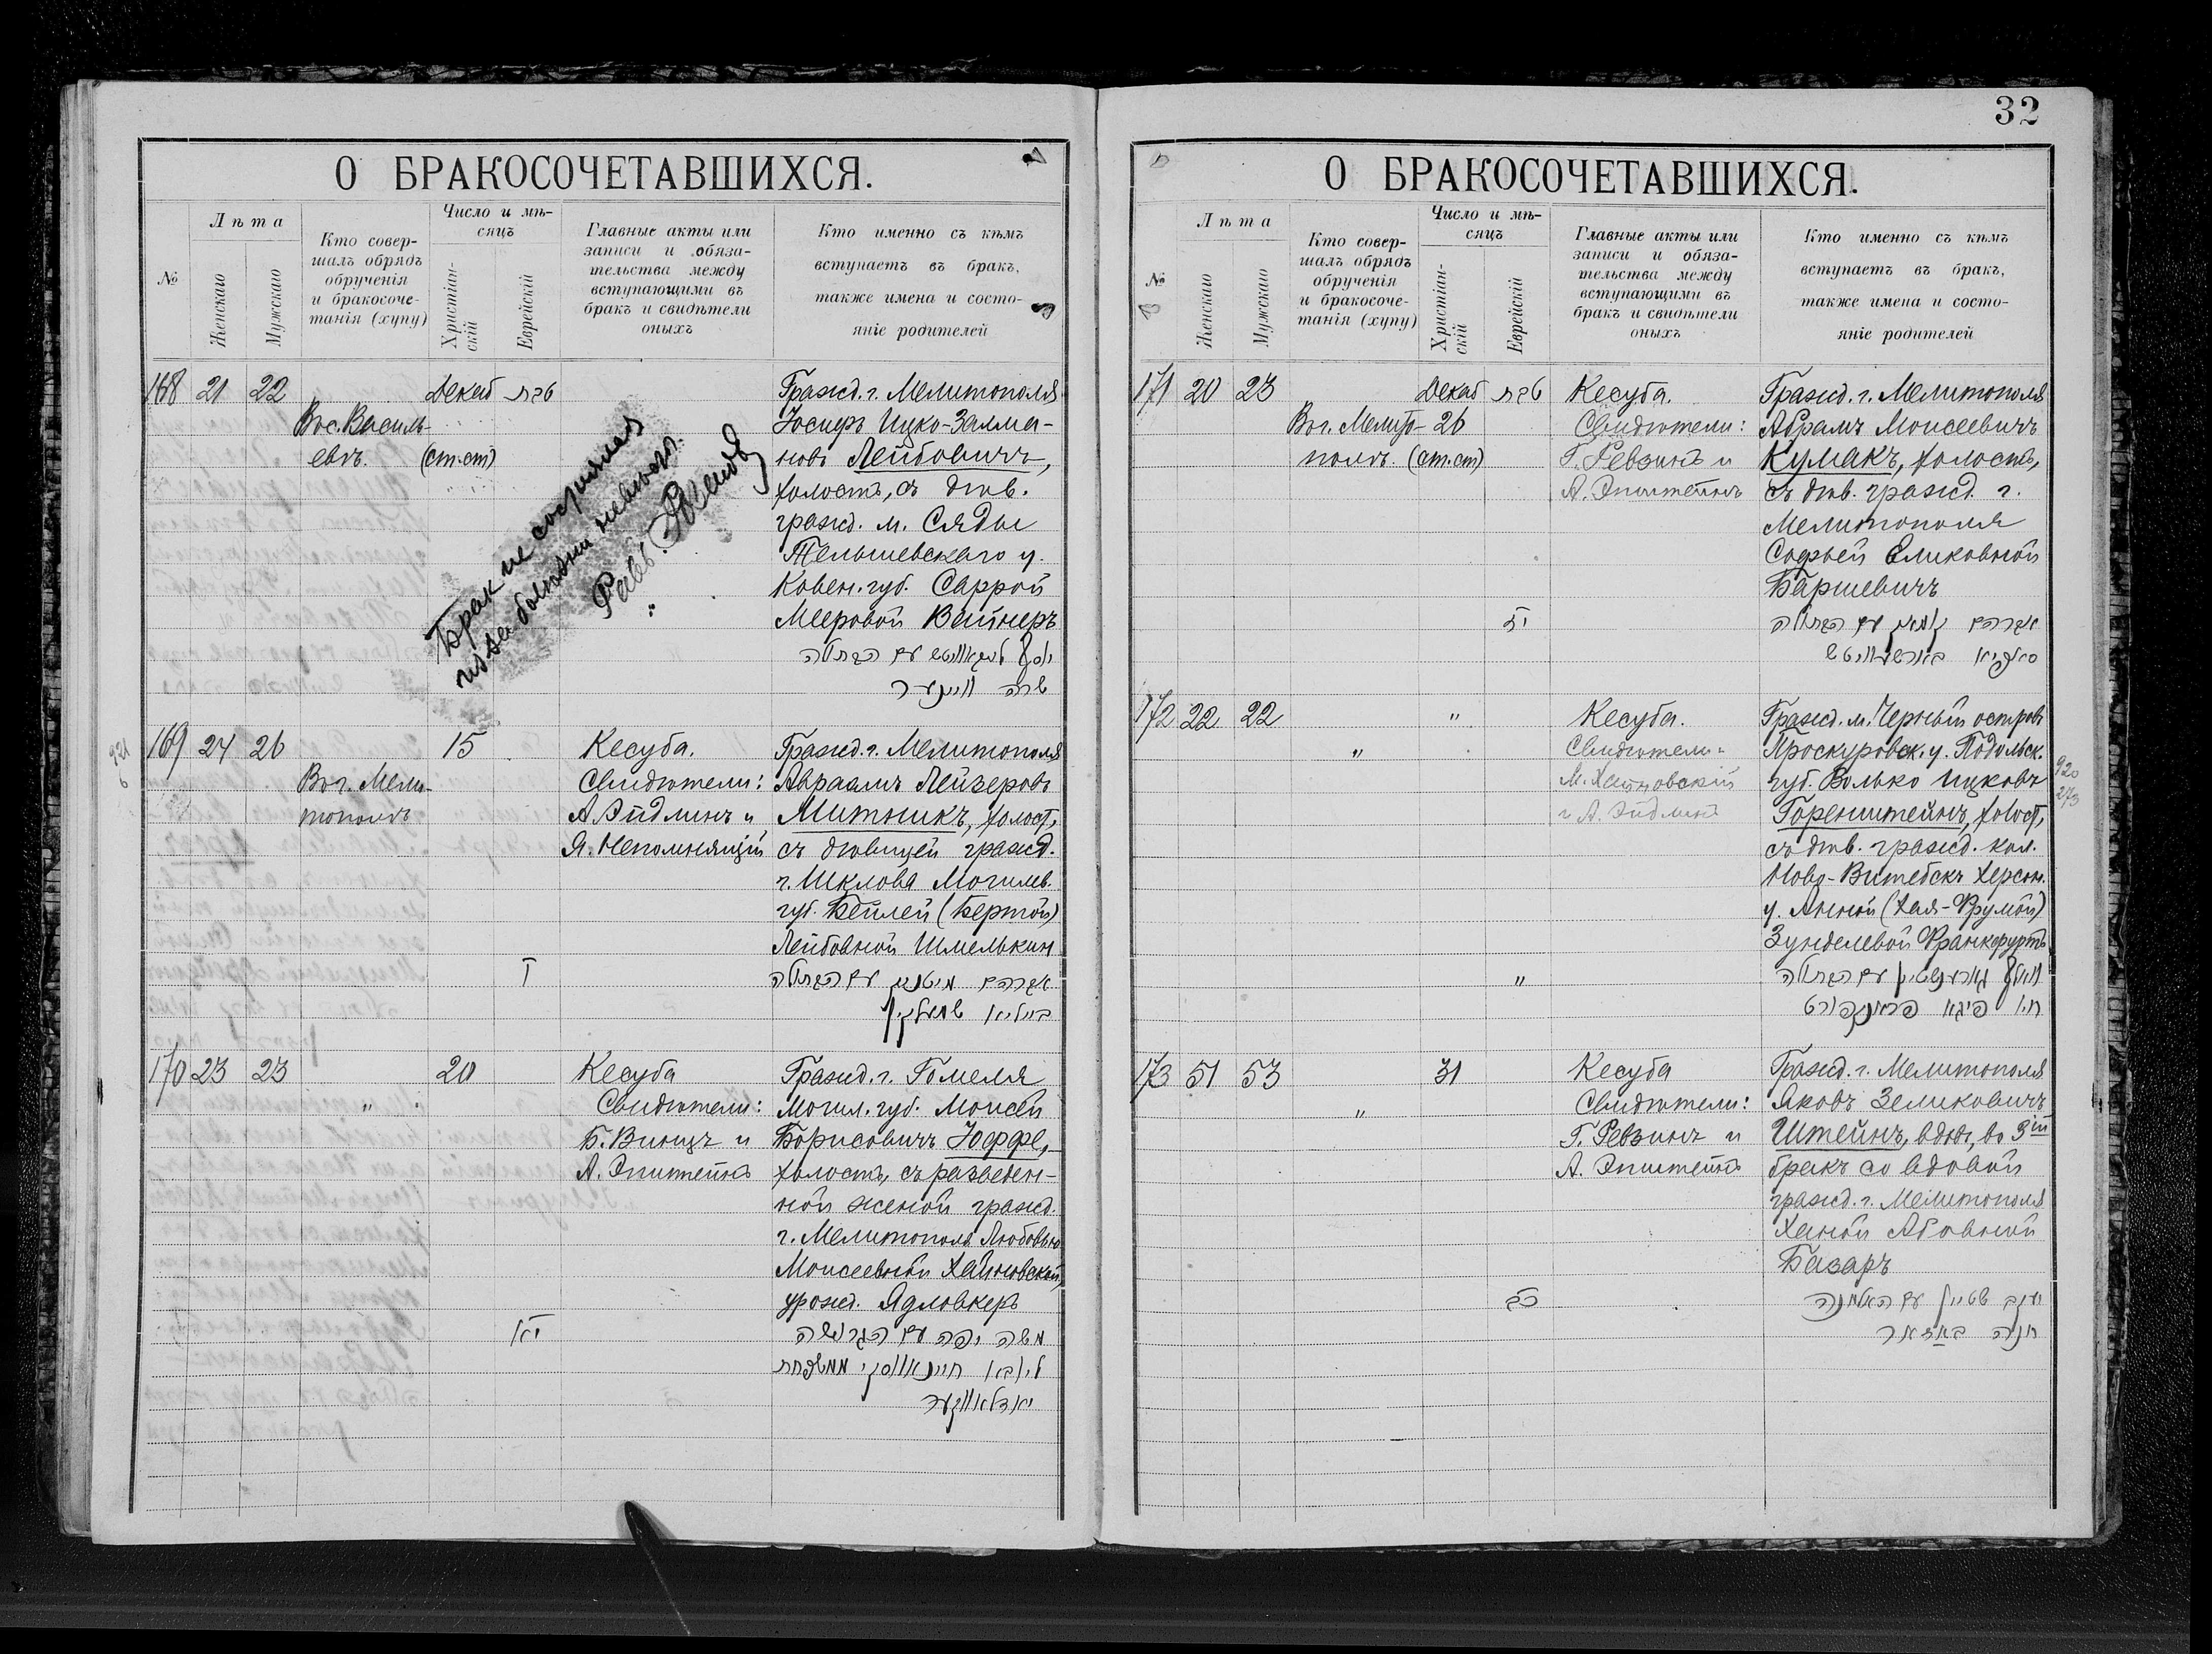 О БРАКОСОЧЕТАВШИХСЯ.
№
Лѣта
Женскаго
Мужскаго
Кто совер-
шалъ обрядъ
обрученія
и бракосоче-
танія (хупу)
Число и мѣ-
сяцъ
Христіан-
скій
Еврейскій
Главные акты или
записи и обяза-
тельства между
вступающими въ
бракъ и свидѣтели
оныхъ
Кто именно съ кѣмъ
вступаетъ въ бракъ,
также имена и состо-
яніе родителей
168 21 22
Въ с. Василь-
евкѣ.
Декаб
(ст. ст)
טבת
Брак не состоялся
из за болезни невесты.
Гражд. г. Мелитополя
Іосифъ Ицко-Залма-
новъ Лейбовичъ,
холостъ, съ дѣв.
гражд. м. Сяды
Тельшевскаго у.
Ковен. губ. Саррой
Мееровой Вайнеръ
יוסף לייבאוויטש עם הבתולה
שרה וויינער
169 24 26
Въ г. Мели-
тополѣ
15
Кесуба.
Свидѣтели:
А. Эйдлинъ и
Я. Непомнящій
Гражд. г. Мелитополя
Авраамъ Лейзеровъ
Митникъ, холост,
съ дѣвицей гражд.
г. Шклова Могилев.
губ. Бейлей (Бертой)
Лейбовной Шмелькин
אברהם מיטניק עם הבתולה
ביילא שמעלקין
170 23 23
"
20
Кесуба
Свидѣтели:
Б. Винцъ и
А. Эпштейнъ
Гражд. г. Гомеля
Могил. губ. Моисей
Борисовичъ Іоффе,
холостъ, съ разведен-
ной женой гражд.
г. Мелитополя Любовью
Моисеевной Хайновской,
урожд. Ядловкеръ
משה יפה עם הגרושה
ליובא חיינאווסקי ממשפחת
יאדלאווקער
32
О БРАКОСОЧЕТАВШИХСЯ.
№
Лѣта
Женскаго
Мужскаго
Кто совер-
шалъ обрядъ
обрученія
и бракосоче-
танія (хупу)
Число и мѣ-
сяцъ
Христіан-
скій
Еврейскій
Главные акты или
записи и обяза-
тельства между
вступающими въ
бракъ и свидѣтели
оныхъ
Кто именно съ кѣмъ
вступаетъ въ бракъ,
также имена и состо-
яніе родителей
171 20 23
Въ г. Мелито-
полѣ.
Декаб
26
(ст. ст)
טבת
Кесуба.
Свидѣтели:
Г. Ревзинъ и
А. Эпштейнъ
Гражд. г. Мелитополя
Абрамъ Моисеевичъ
Кумакъ, холостъ,
съ дѣв. гражд. г.
Мелитополя
Софьей Еликовной
Баршевичъ
אברהם קומאק עם הבתולה
סאפיא בארשעוויטש
172 22 22
"
"
Кесуба.
Свидѣтели:
М. Хайновскій
и А. Эйдлинъ
Гражд. м. Черный островъ
Проскуровск. у. Подольск.
губ. Волько Ицковъ
Горенштейнъ, холост,
съ дѣв. гражд. кол.
Ново-Витебскъ Херсон.
у. Анной (Хая-Фрумой)
Зунделевой Франкфуртъ
"
173 51 53
"
31
Кесуба
Свидѣтели:
Г. Ревзинъ и
А. Эпштейнъ
Гражд. г. Мелитополя
Яковъ Зеликовичъ
Штейнъ, вдов, во 3ій
бракъ со вдовой
гражд. г. Мелитополя
Ханой Абовной
Базаръ
כב
יעקב שטיין עם האלמנה
חנה באזאר